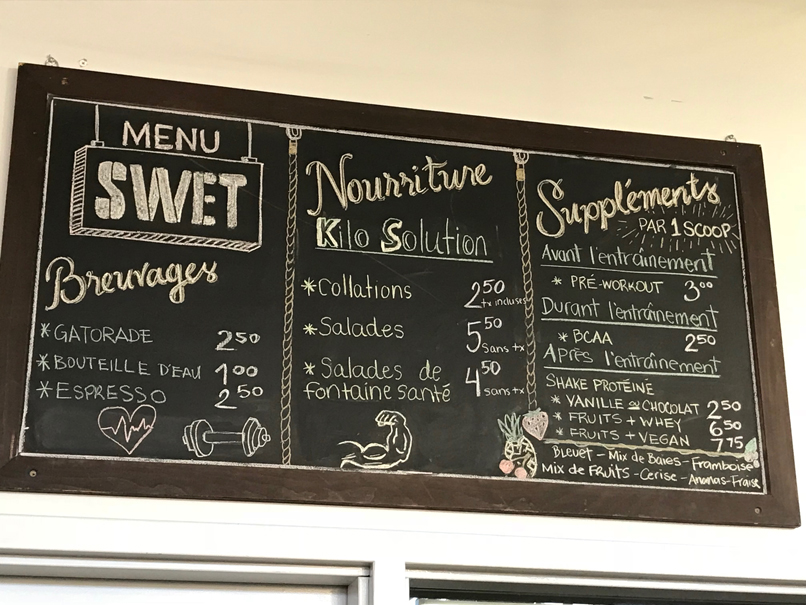 MENU
SWET
Breuvages
*GATORADE 2 50
*BOUTEILLE D'EAU 1 00
*ESPRESSO 2 50
Nourriture
Kilo Solution
*Collations 2 50
tx incluses
*Salades 5 50
sans tx
*Salades de
fontaine santé 4 50
sans tx
Suppléments
PAR 1 SCOOP
Avant l'entraînement
* PRÉ-WORKOUT 3 00
Durant l'entraînement
* BCAA 2 50
Après l'entraînement
SHAKE PROTÉINE
* VANILLE OU CHOCOLAT 2 50
* FRUITS + WHEY 6 50
* FRUITS + VEGAN 7 75
Bleuet - Mix de Baies - Framboise
Mix de FRUITS - Cerise - Ananas-Fraise